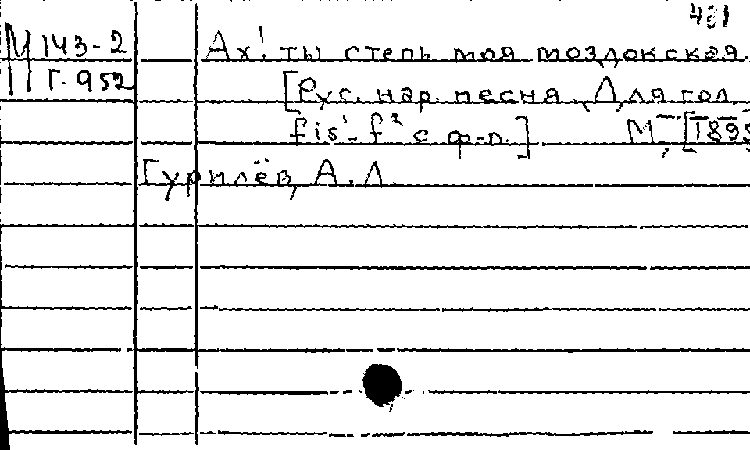 М 143-2 Ах! ты степь моя моздокская.
Г-952 [Рус. нар. песня. Для гол.
fis¹-f² с ф-п.] М., [1895
Гурилёв, А. Л.